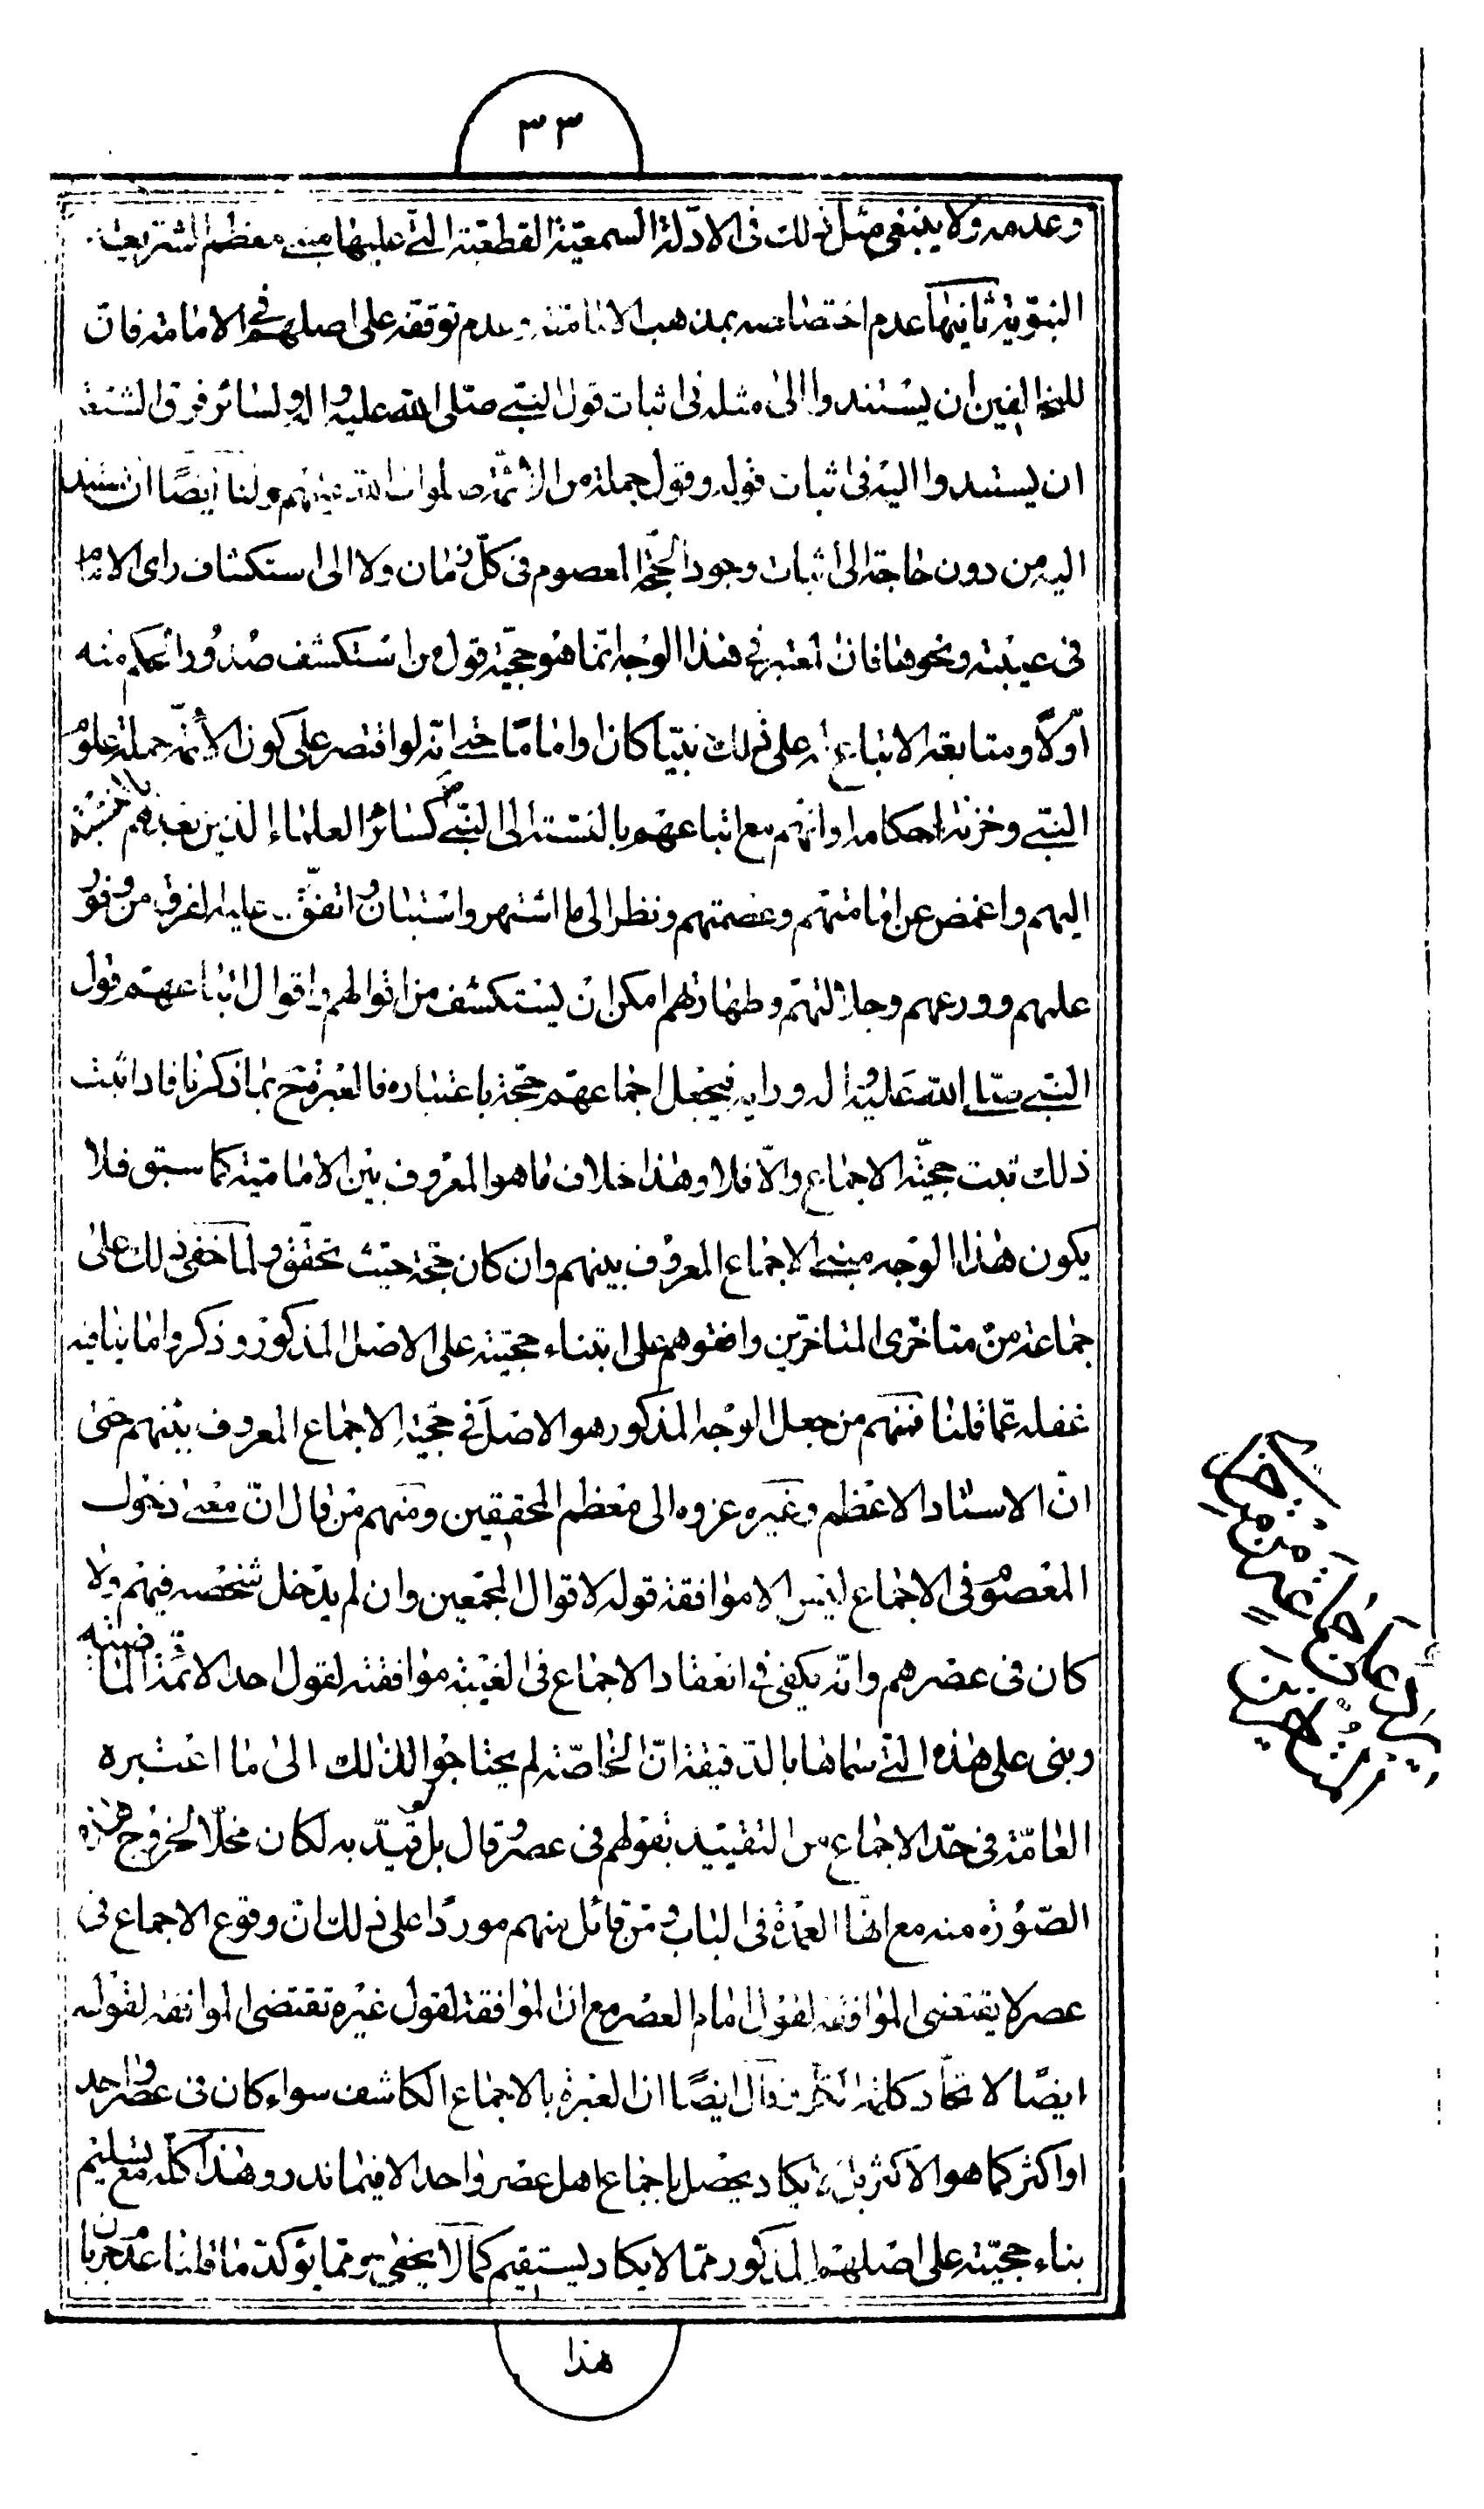 ٣٣
وعدمه ولا ينبغى مثل ذلك فى الادلّة السمعيّة القطعيّة التى عليها مبنى معظم الشريعة
النبويّة ثانيها عدم اختصاصه بمذهب الاماميّة وعدم توقفه على اصلهم فى الامامة فان
للمخالفين ان يستندوا الى مثله فى اثبات قول النبى صلى الله عليه واله ولسائر فرق الشيعة
ان يستندوا اليه فى اثبات قوله وقول جملة من الائمّة صلوات الله عليهم ولنا ايضًا ان نستند
اليه من دون حاجة الى اثبات وجود الحجّة المعصوم فى كلّ زمان ولا الى استكشاف راى الامام
فى غيبته ونحوها فان المعتبر فى هذا الوجه انّما هو حجيّة قول من استكشف صدور الحكم منه
اوّلًا ومتابعة الاتباع له على ذلك نبيّا كان او امامًا حتى انّه لو اقتصر على كون الائمّة حملة علوم
النبى وخزنة احكامه وانّهم مع اتباعهم بالنسبة الى النبىّ ص كسائر العلماء الذين بعدهم بالنسبة
اليهم واغمض عن امامتهم وعصمتهم ونظر الى ما اشتهر واستبان واتفق عليه الفرق من وفور
علمهم وورعهم وجلالتهم وطهارتهم امكن ان يستكشف من اقوالهم واقوال اتباعهم قول
النبى صلى الله عليه واله ورايه فيجعل اجماعهم حجّة باعتباره فالعبرة ح بما ذكرنا فاذا ثبت
ذلك ثبت حجيّة الاجماع والّا فلا وهذا خلاف ما هو المعروف بين الاماميّة كما سبق فلا
يكون هذا الوجه مبنى الاجماع المعروف بينهم وان كان حجّة حيث تحقّق ولما خفى ذلك على
جماعة من متاخرى المتاخرين وافقوهم على ابتناء حجيّته على الاصل المذكور وذكروا ما ينافيه
غفلة عمّا قلنا فمنهم من جعل الوجه المذكور هو الاصل فى حجّية الاجماع المعروف بينهم حتى
انّ الاستاد الاعظم وغيره عزوه الى معظم المحققين ومنهم من قال انّ معنى دخول
المعصوم فى الاجماع ليس الا موافقة قوله لاقوال المجمعين وان لم يدخل شخصه فيهم ولا
كان فى عصرهم وانّه يكفى فى انعقاد الاجماع فى الغيبة موافقته لقول احد الائمّة الماضية
وبنى على هذه التى سماها بالدقيقة انّ الخاصّة لم يحتاجوا لذلك الى ما اعتبره
العامّة فى حدّ الاجماع من التقييد بقولهم فى عصر قال بل لو قيّد به لكان مخلّا لخروج هذه
الصّورة منه مع انها العمدة فى الباب ومن قائل منهم موردًا على ذلك ان وقوع الاجماع فى
عصر لا يقتضى الموافقة لقول امام العصر مع ان الموافقة لقول غيره تقتضى الموافقة لقوله
ايضًا لاتحاد كلمة قال ايضًا ان العبرة بالاجماع الكاشف سواء كان فى عصر واحد
او اكثر كما هو الاكثر بل لا يكاد يحصل باجماع اهل عصر واحد الا فيما ندر وهذا كله مع تسليم
بناء حجيّته على اصلهم المذكور ممّا لا يكاد يستقيم كما لا يخفى وممّا يؤكد ما قلنا عدم جريان
هذا